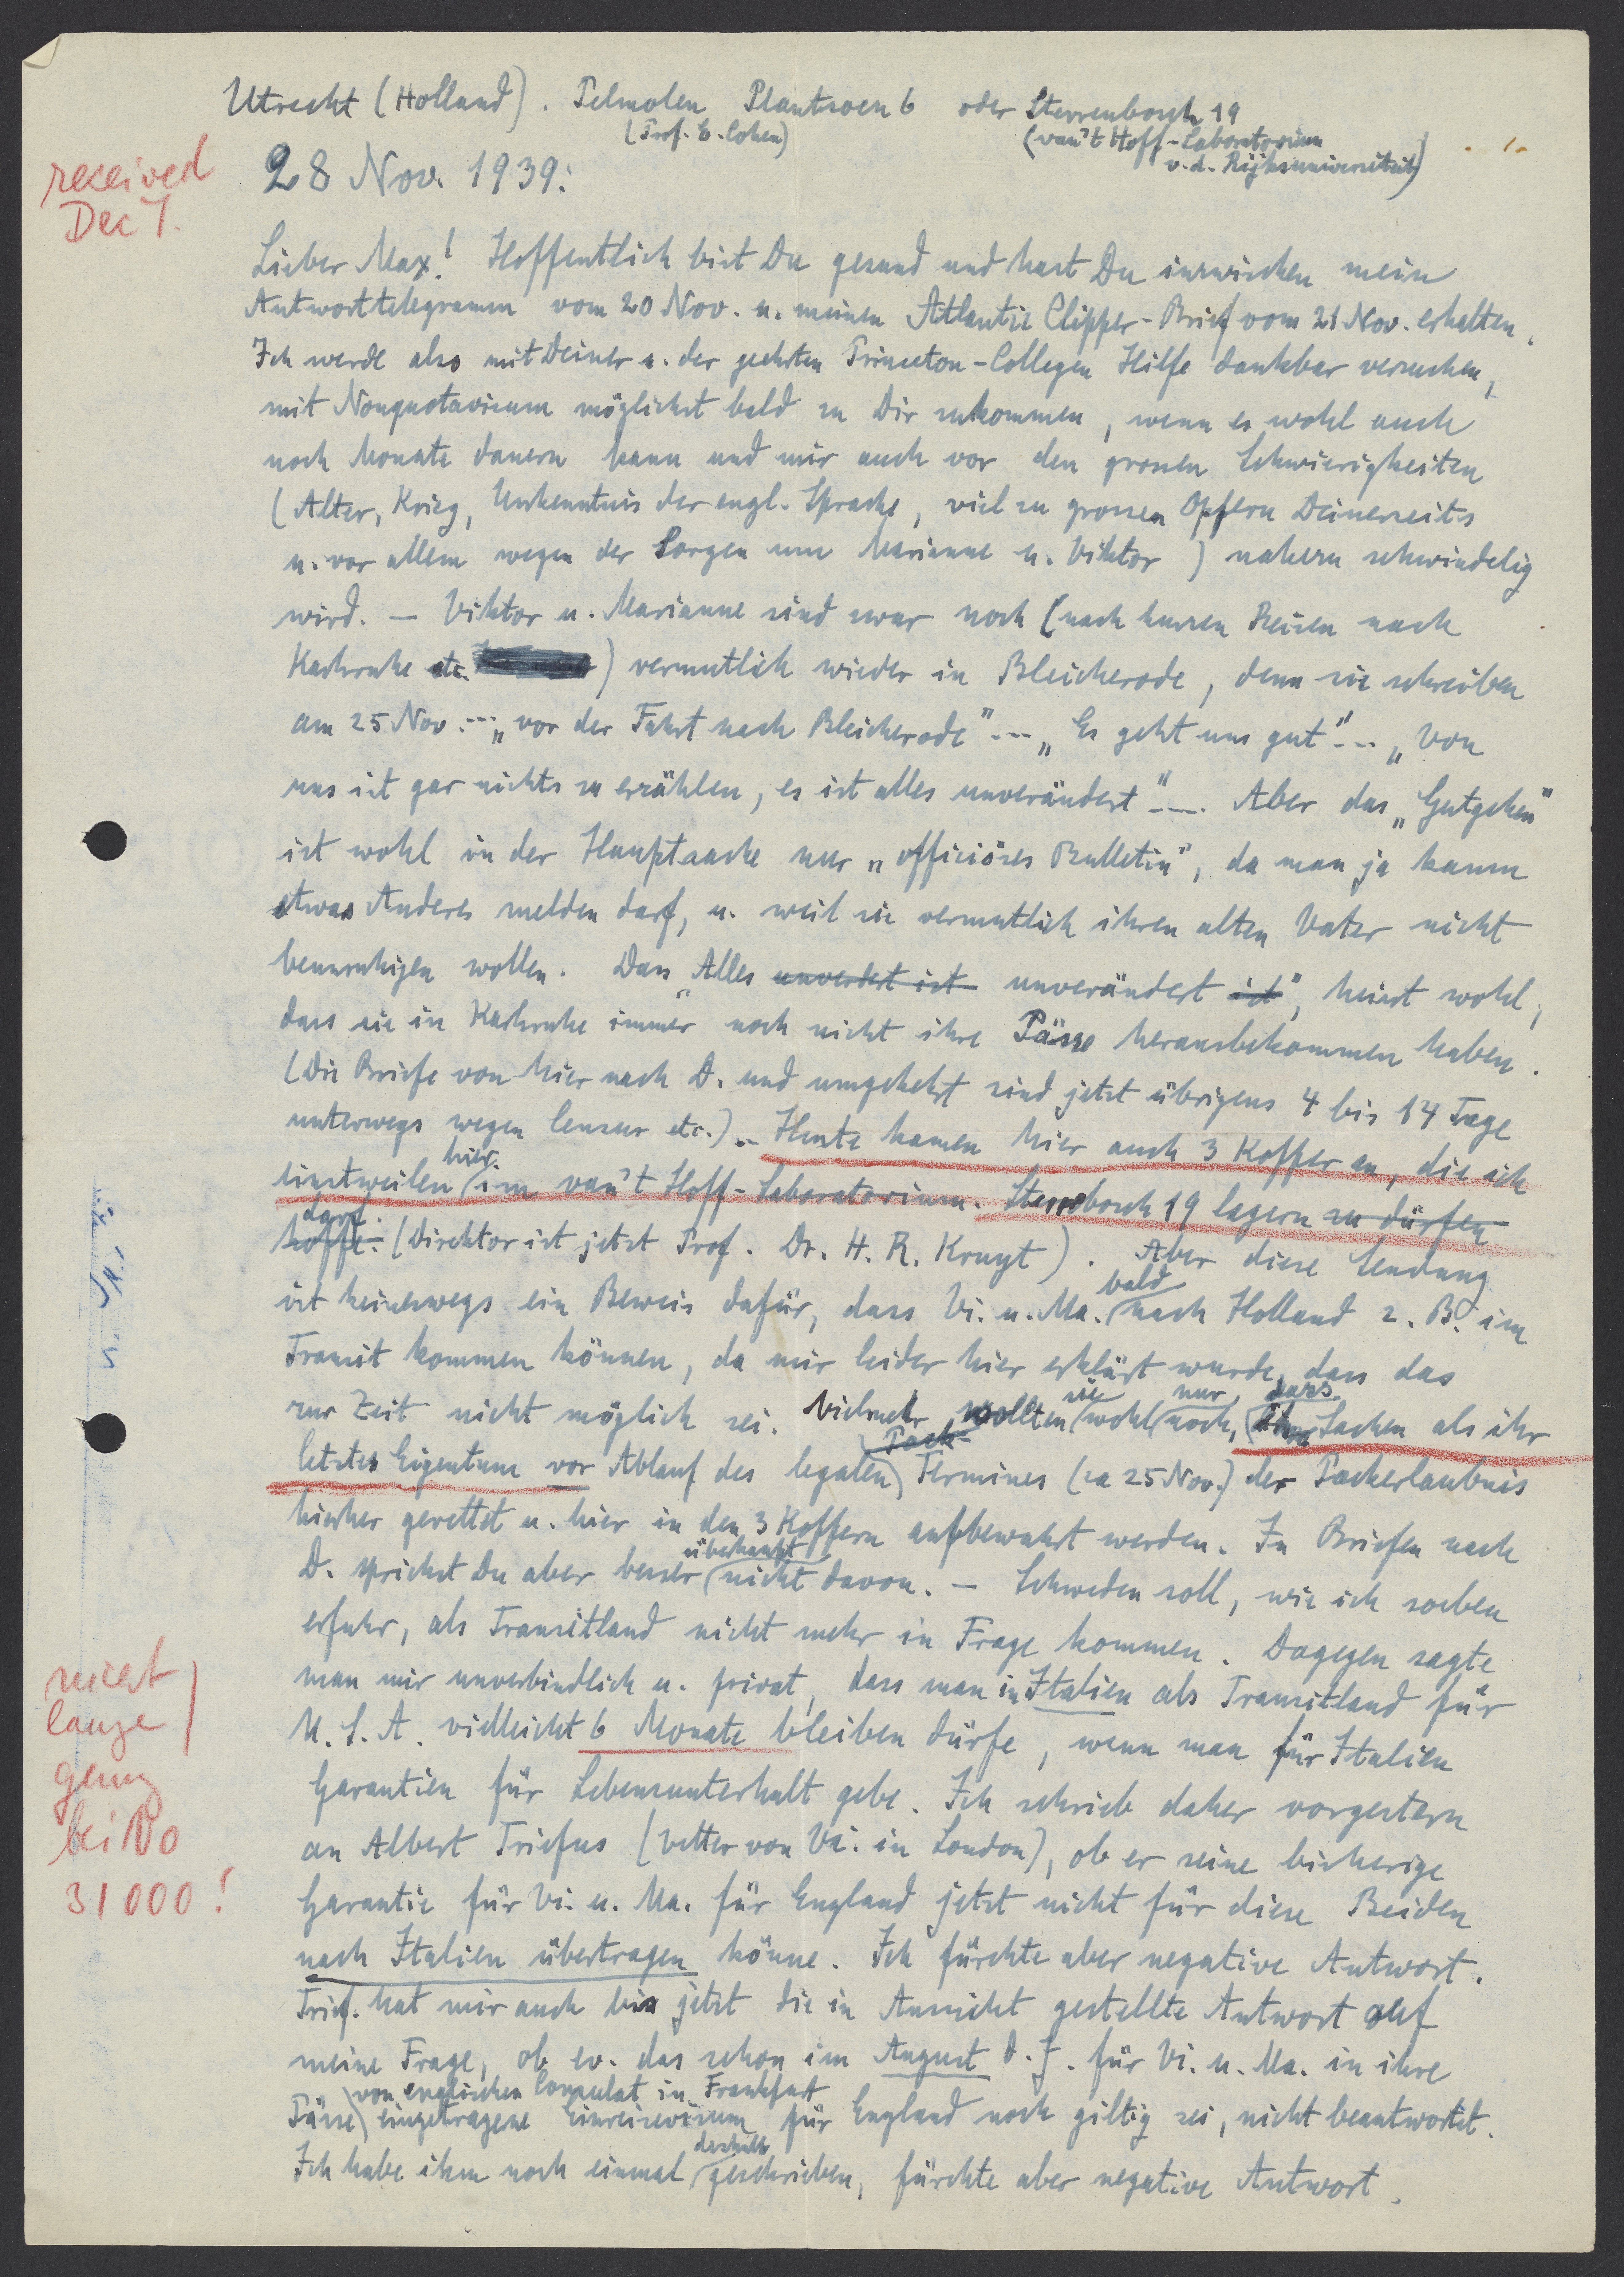 Utrecht (Holland). Pelmolen Plantsoen 6 oder Sterrenbosch 19
(Prof. E. Cohen) (van't Hoff-Laboratorium
v. d. Rijksuniversiteit)
received
Dec 7.
28 Nov. 1939.
Lieber Max! Hoffentlich bist Du gesund und hast Du inzwischen mein
Antworttelegramm vom 20 Nov. u. meinen Atlantic Clipper-Brief vom 21 Nov. erhalten.
Ich werde also mit Deiner u. der geehrten Princeton-Collegen Hilfe dankbar versuchen,
mit Nonquotavisum möglichst bald zu Dir zukommen, wenn es wohl auch
noch Monate dauern kann und mir auch vor den grossen Schwierigkeiten
(Alter, Krieg, Unkenntnis der engl. Sprache, viel zu grossen Opfern Deinerseits
u. vor allem wegen der Sorgen um Marianne u. Viktor) nahezu schwindelig
wird. – Viktor u. Marianne sind zwar noch (nach kurzen Reisen nach
Karlsruhe etc.) vermutlich wieder in Bleicherode, denn sie schreiben
am 25 Nov. --- „vor der Fahrt nach Bleicherode" --- „Es geht uns gut" --- „Von
uns ist gar nichts zu erzählen, es ist alles unverändert" ---. Aber das „Gutgehen"
ist wohl in der Hauptsache nur „officiöses Bulletin", da man ja kaum
etwas Anderes melden darf, u. weil sie vermutlich ihren alten Vater nicht
beunruhigen wollen. Dass „Alles unverdert ist unverändert ist", heisst wohl,
dass sie in Karlsruhe immer noch nicht ihre Pässe herausbekommen haben.
(Die Briefe von hier nach D. und umgekehrt sind jetzt übrigens 4 bis 14 Tage
unterwegs wegen Censur etc.) – Heute kamen hier auch 3 Koffer an, die ich
einstweilen hier im van't Hoff-Laboratorium. Sterrebosch 19 lagern zu dürfen
hoffe. darf. (Direktor ist jetzt Prof. Dr. H. R. Kruyt). Aber diese Sendung
ist keineswegs ein Beweis dafür, dass Vi. u. Ma. bald nach Holland z. B. im
Transit kommen können, da mir leider hier erklärt wurde, dass das
zur Zeit nicht möglich sei. Vielmehr wollten sie wohl nur noch, dass Sachen als ihr
letztes Eigentum vor Ablauf des legalen Pack- Termines (ca 25 Nov.) der Packerlaubnis
hierher gerettet u. hier in den 3 Koffern aufbewahrt werden. In Briefen nach
D. sprichst Du aber besser überhaupt nicht davon. – Schweden soll, wie ich soeben
erfuhr, als Transitland nicht mehr in Frage kommen. Dagegen sagte
man mir unverbindlich u. privat, dass man in Italien als Transitland für
U. S. A. vielleicht 6 Monate bleiben dürfe, wenn man für Italien
Garantien für Lebensunterhalt gebe. Ich schrieb daher vorgestern
an Albert Triefus (Vetter von Vi. in London), ob er seine bisherige
Garantie für Vi. u. Ma. für England jetzt nicht für diese Beiden
nach Italien übertragen könne. Ich fürchte aber negative Antwort.
Trief. hat mir auch bis jetzt die in Aussicht gestellte Antwort auf
meine Frage, ob ev. das schon im August d. J. für Vi. u. Ma. in ihre
Pässe vom englischen Consulat in Frankfurt eingetragene Einreisevisum für England noch giltig sei, nicht beantwortet.
Ich habe ihm noch einmal deshalb geschrieben, fürchte aber negative Antwort.
nicht
lange
genug
bei No
31000!